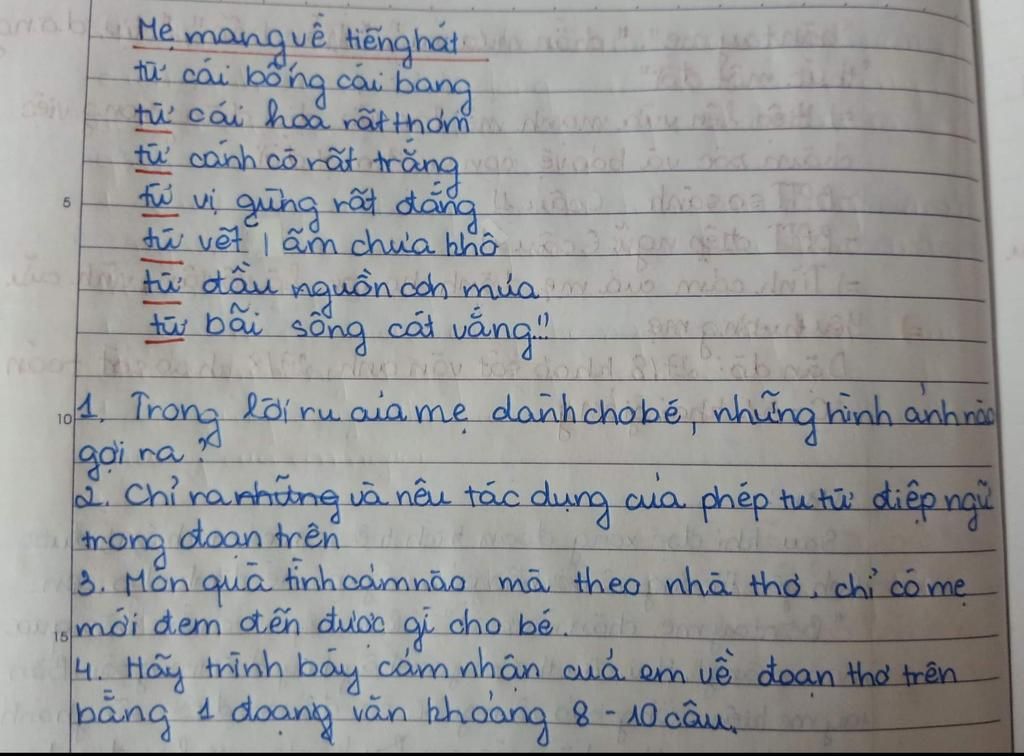 Mẹ mang về tiếng hát
từ cái bống cái bang
từ cái hoa rất thơm
từ cánh cò rất trắng
từ vị gừng rất đắng
từ vết lấm chưa khô
từ đầu nguồn cơn mưa
từ bãi sông cát vắng..."
1. Trong lời ru của mẹ dành cho bé, những hình ảnh nào
gợi ra?
2. Chỉ ra những và nêu tác dụng của phép tu từ điệp ngữ
trong đoạn trên
3. Món quà tình cảm nào mà theo nhà thơ, chỉ có mẹ
mới đem đến được gì cho bé.
4. Hãy trình bày cảm nhận của em về đoạn thơ trên
bằng 1 đoạng văn khoảng 8-10 câu.
5
10
15